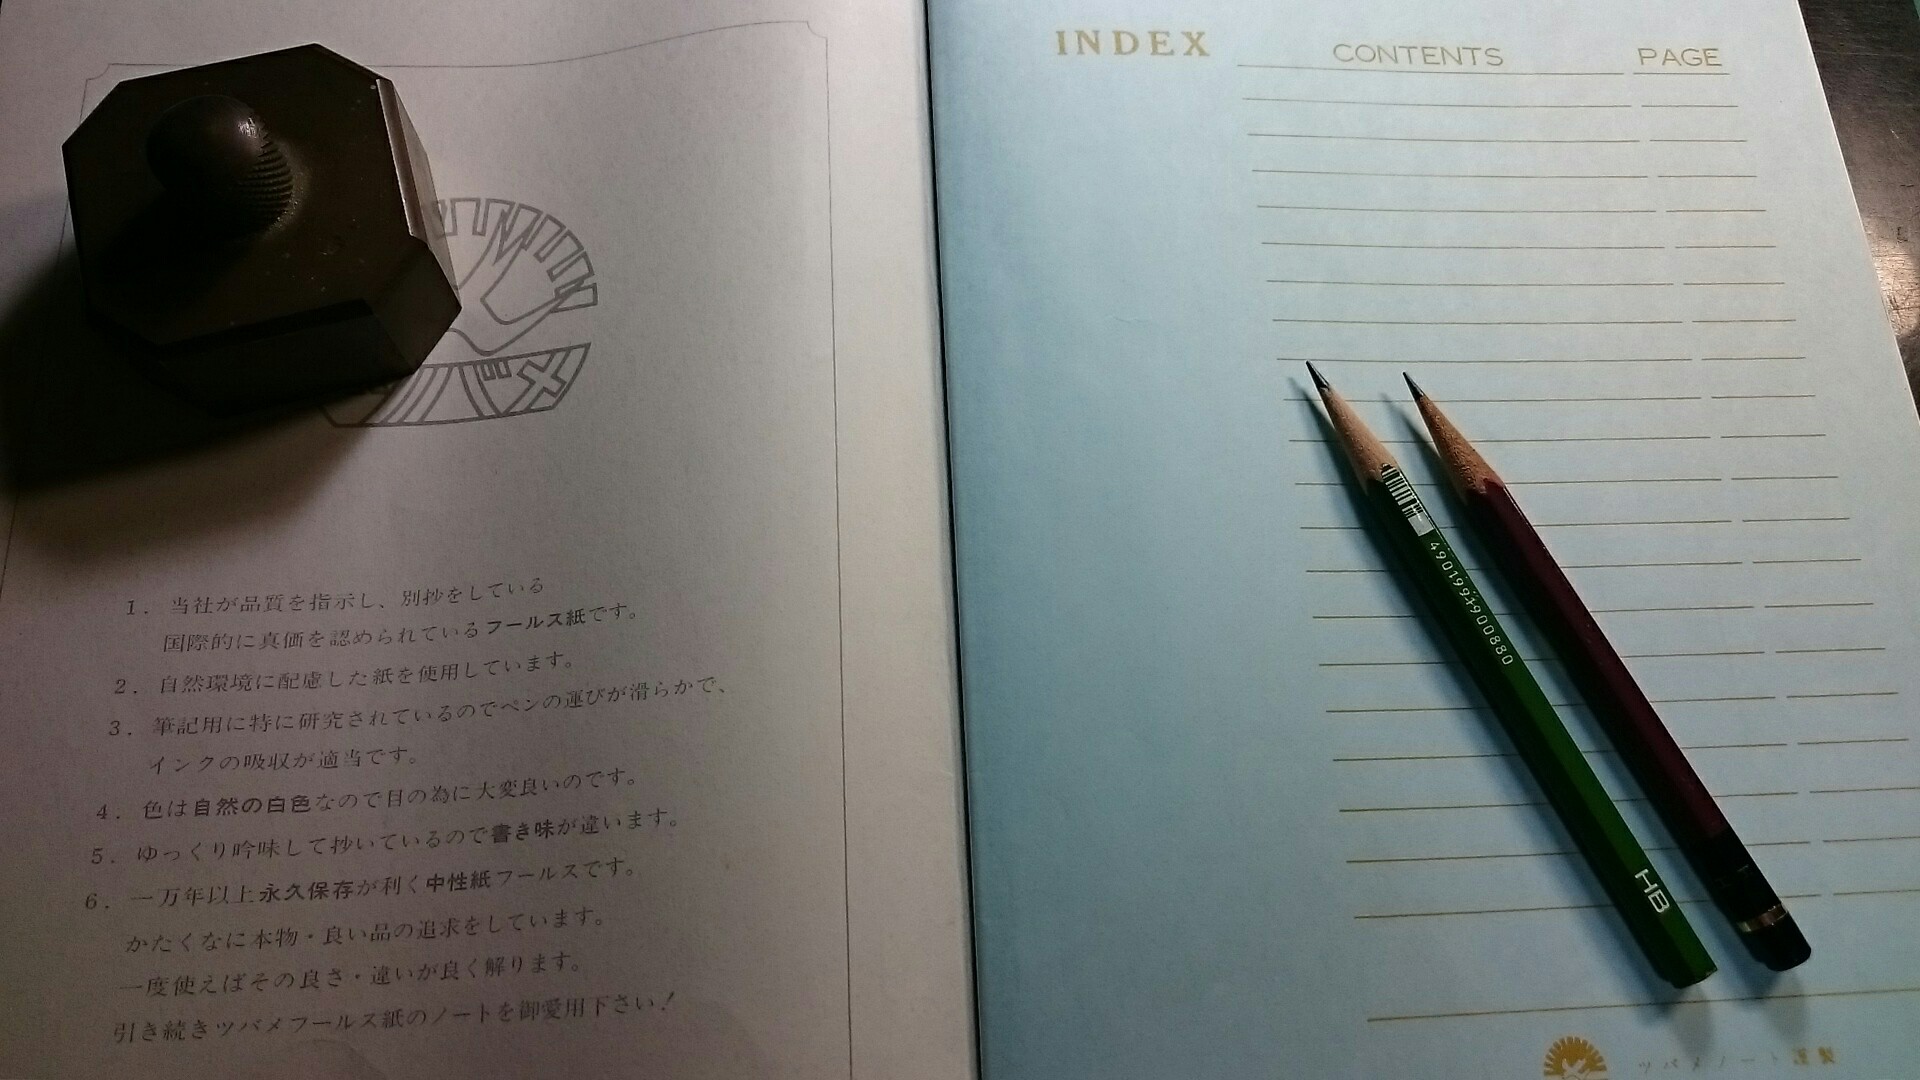 1. 当社が品質を指示し、別抄をしている
国際的に真価を認められているフールス紙です。
2. 自然環境に配慮した紙を使用しています。
3. 筆記用に特に研究されているのでペンの運びが滑らかで、
インクの吸収が適当です。
4. 色は自然の白色なので目の為に大変良いのです。
5. ゆっくり吟味して抄いているので書き味が違います。
6. 一万年以上永久保存が利く中性紙フールスです。
かたくなに本物・良い品の追求をしています。
一度使えばその良さ・違いが良く解ります。
引き続きツバメフールス紙のノートを御愛用下さい!
INDEX
CONTENTS PAGE
4901991900880
HB
ツバメノート謹製